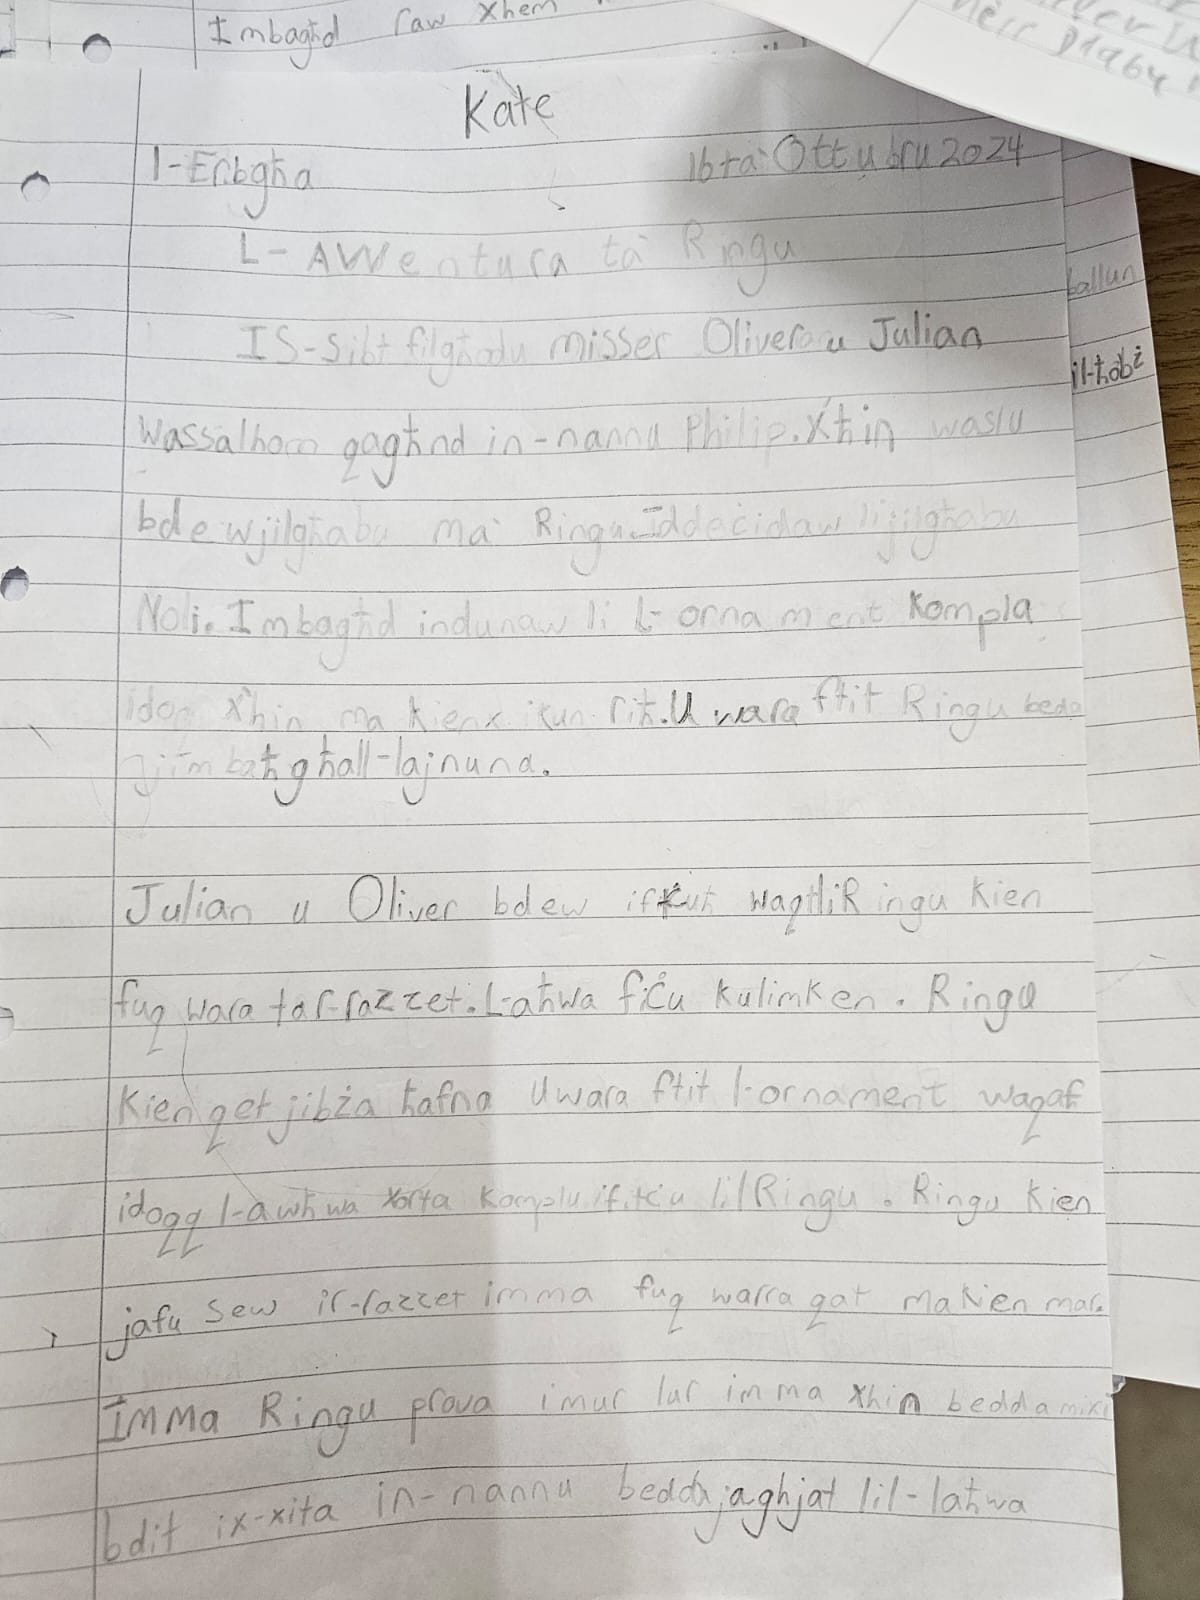 Imbagħd raw xhem
Kate
l-Erbgħa 16 ta' Ottubru 2024
L-Avventura ta' Ringu
IS-Sibt filgħodu misser Oliver u Julian
Wassalhom qagħnd in-nannu Philip. Xħin waslu
bdew jilgħabu ma' Ringu. Iddeċidaw li jilgħabu
Noli. Imbagħd indunaw li L-ornament Kompla
idoq xħin ma kienx ikun riħ. U wara ftit Ringu beda
jimbaħ għall-lajnuna.
ballun
il-ħobż
Julian u Oliver bdew iftkuħ waqtli Ringu Kien
fuq wara tar-razzet. L-aħwa fiċu kulimken. Ringu
Kien qet jibża ħafna U wara ftit l-ornament waqaf
idoqq l-awħwa xorta komplu ifitċu lil Ringu. Ringu Kien
jafu sew ir-razzet imma fuq warra qat ma kien mar.
Imma Ringu prova imur lur imma xħin bedda mixi
bdit ix-xita in-nannu bedda jagħjat lil-laħwa